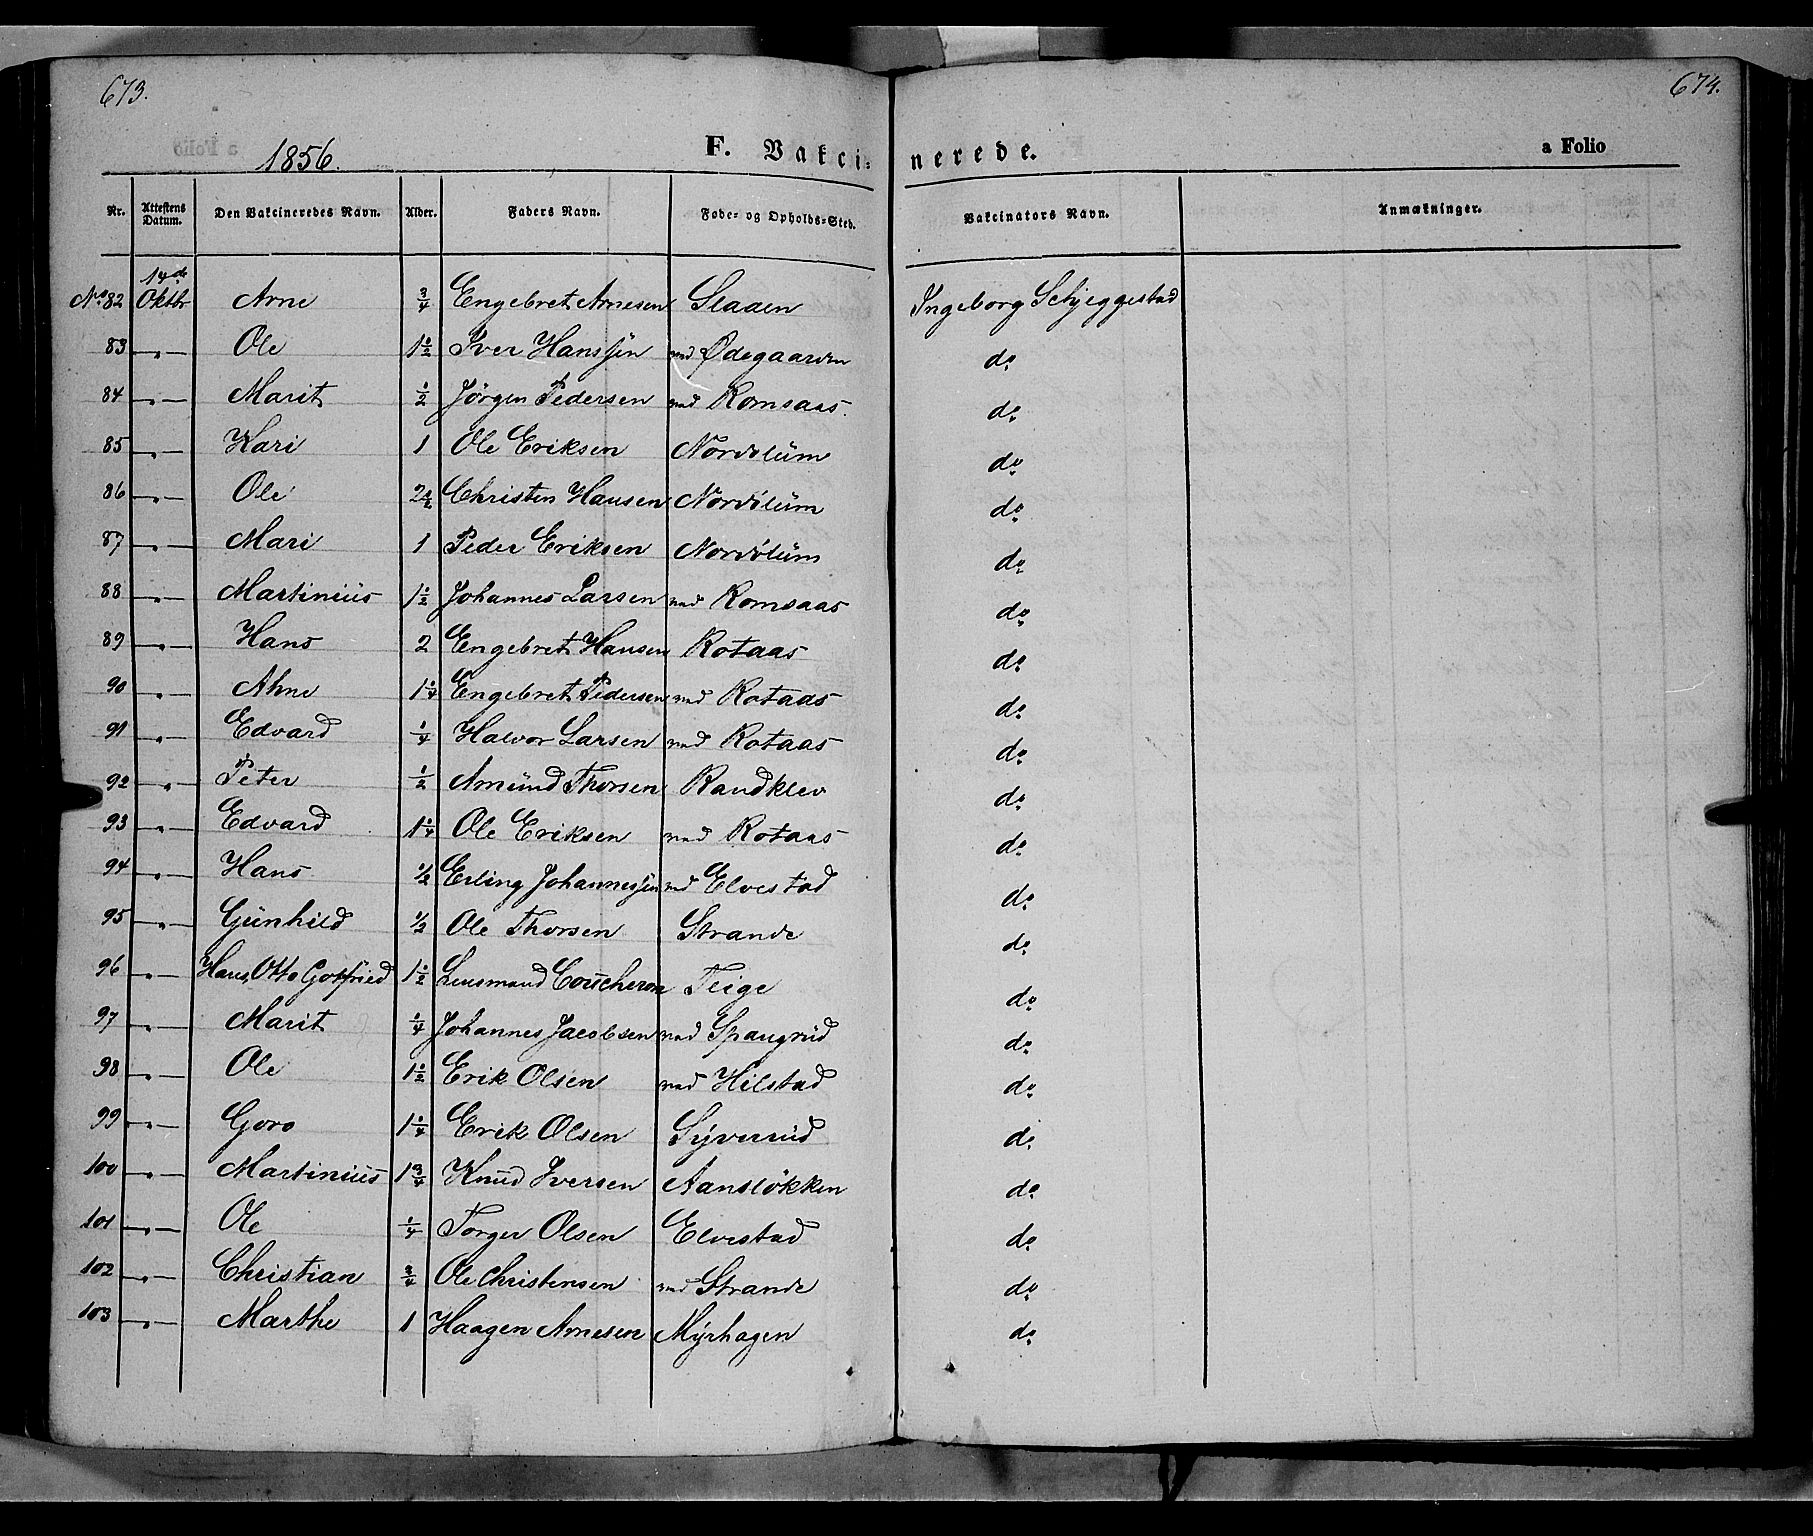 673.
674.
1856.
F. Vakci-
nerede.
a Folio
Nr. Attestens Datum. Den Vakcineredes Navn. Alder. Faders Navn. Føde- og Opholds-Sted. Vakcinators Navn. Anmækninger.
No 82 14de Oktbr Arne 3/4 Engebret Arnesen Slaaen Ingeborg Schjeggestad
83 -"- Ole 1 1/2 Iver Hanssen ved Ødegaarden do
84 -"- Marit 1/2 Jörgen Pedersen ved Romsaas. do
85 -"- Kari 1 Ole Eriksen Nordölüm do
86 -"- Ole 2 1/2 Christen Hansen Nordölüm do
87 -"- Mari 1 Peder Eriksen Nordölüm do
88 -"- Martiniüs 1 1/2 Johannes Larsen ved Romsaas do
89 -"- Hans 2 Engebret Hansen Rotaas do
90 -"- Ahne 1 1/4 Engebret Pedersen ved Rotaas do
91 -"- Edvard 1/4 Halvor Larsen ved Rotaas do
92 -"- Peter 1/2 Amünd Thorsen Randklev do
93 -"- Edvard 1 1/4 Ole Eriksen ved Rotaas do
94 -"- Hans 1/2 Erling Johannessen ved Elvestad do
95 -"- Günhild 1/2 Ole Thorsen Strande do
96 -"- Hans, Otto Gotfried 1 1/2 Lensmand Coücheron Teige do
97 -"- Marit 1/4 Johannes Jacobsen ved Spangrüd do
98 -"- Ole 1 1/2 Erik Olsen ved Hilstad do
99 -"- Goro 1 1/4 Erik Olsen Syverrüd do
100 -"- Martiniüs 1 3/4 Knüd Iversen Aanslökken do
101 -"- Ole 1/4 Torger Olsen Elvestad do
102 -"- Christian 3/4 Ole Christensen ved Strande do
103 -"- Marthe 1 Haagen Arnesen Myrhagen do